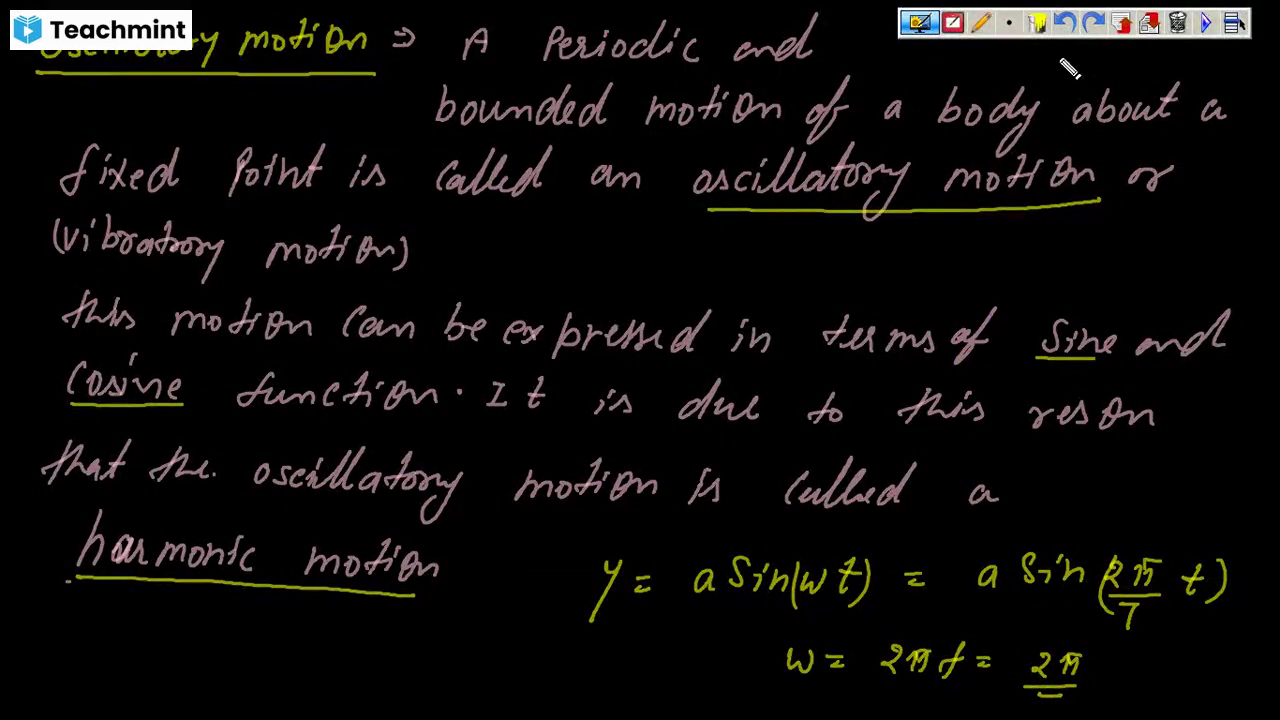 Teachmint
motion ⇒ A Periodic and
bounded motion of a body about a
fixed Point is called an oscillatory motion or
(vibratory motion)
this motion can be expressed in terms of Sine and
Cosine function. It is due to this reson
that the. oscillatory motion is called a
harmonic motion
y = a Sin(wt) = a Sin(2π/T t)
w = 2πf = 2π